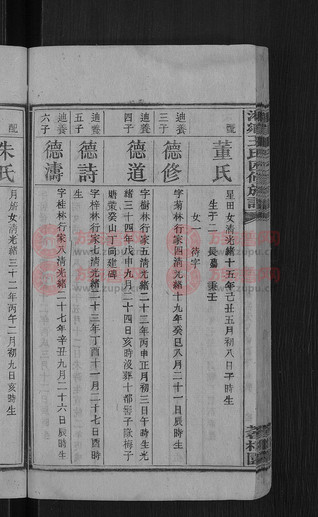 湘鄉王氏四修族譜
配
董氏
星田女清光緒十五年己丑五月初八日子時生
生子二 長 重王
女一 待字
迪養三子
德修
字菊林行家四清光緒十九年癸巳八月二十一日辰時生
迪養四子
德道
字樹林行家五清光緒二十二年丙申正月初三日午時生光
緒三十四年戊申九月二十四日亥時沒葬十都
癸山丁向建碑
迪養五子
德詩
字梓林行家七清光緒二十三年丁酉十一月二十七日酉時生
迪養六子
德濤
字桂林行家八清光緒二十七年辛丑九月二十六日辰時生
配
朱氏
月 女清光緒三十二年丙午二月初九日亥時生